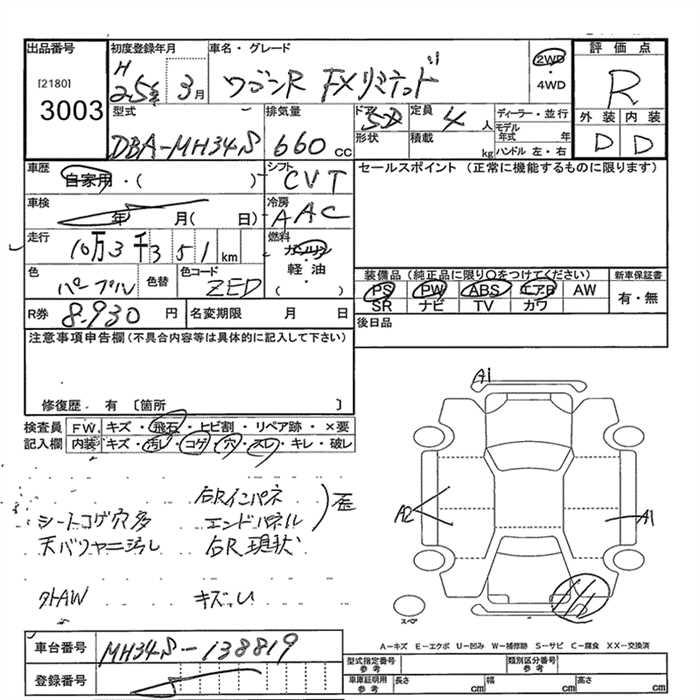 出品番号
[2180]
3003
初度登録年月
H
25年 3月
車名・グレード
ワゴンR FXリミテッド
2WD
・
4WD
評価点
R
外装 内装
D D
型式
DBA-MH34S
排気量
660 cc
ドア
5D
形状
定員
4 人
積載
kg
ディーラー・並行
モデル年式 年
ハンドル 左・右
車歴
自家用・( )
シフト
CVT
セールスポイント (正常に機能するものに限ります)
車検
年 月( 日)
冷房
AAC
走行
10万3千351km
燃料
ガソリン
軽油
( )
色
パープル
色替
色コード
ZED
装備品(純正品に限り○をつけてください)
PS PW ABS エアB AW
SR ナビ TV カワ
新車保証書
有・無
R券 8,930 円
名変期限 月 日
後日品
注意事項申告欄(不具合内容等は具体的に記入して下さい)
修復歴. 有 〔箇所 〕
検査員 FW キズ・飛石・ヒビ割・リペア跡・×要
記入欄 内装 キズ・汚レ・コゲ・穴・スレ・キレ・破レ
右Rインパネ
シートコゲ穴多 エンドパネル 歪
天バリヤニ汚し 右R現状
外AW キズい
A1
A2
A1
スペア
A-キズ E-エクボ U-凹み W-補修跡 S-サビ C-腐食 XX-交換済
車台番号 MH34S-138819
登録番号
型式指定番号 参考
類別区分番号 参考
車庫証明用 参考 長さ cm 幅 cm 高さ cm